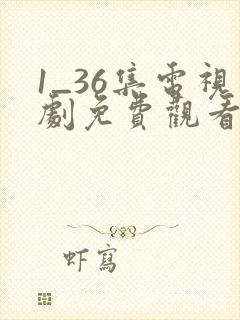 1_36集電視
劇免費觀看
虾寫